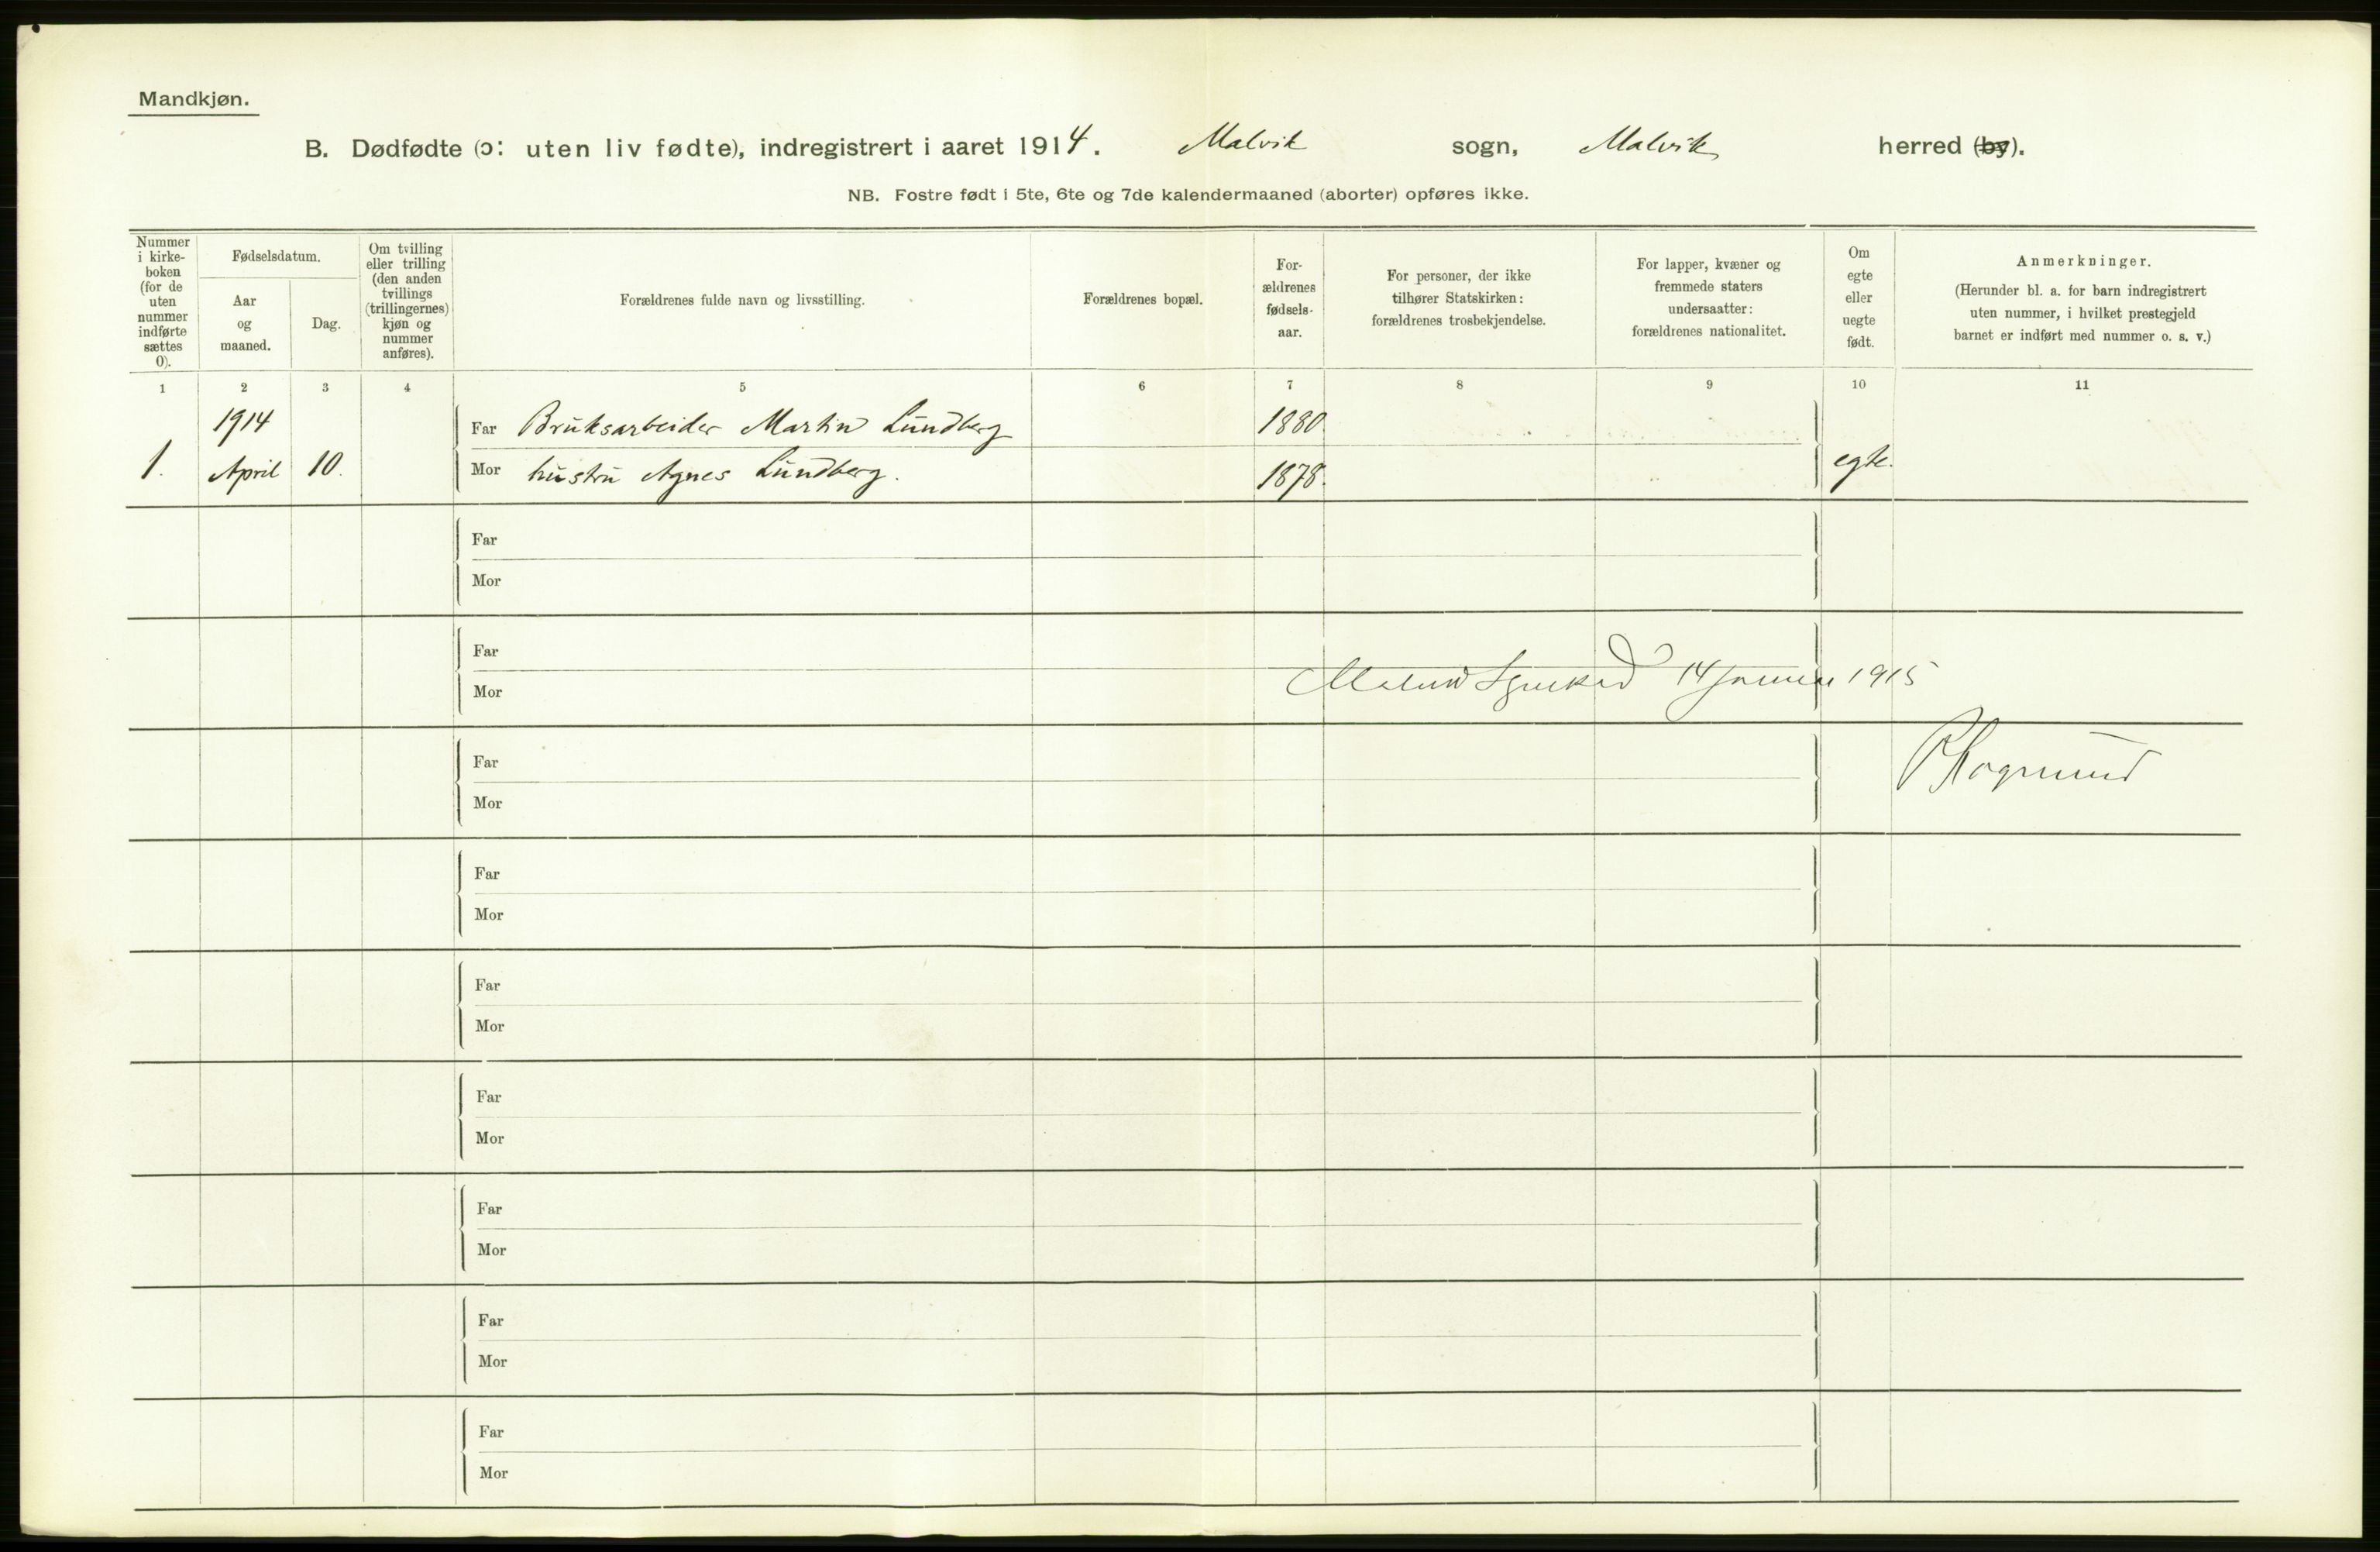 Mandkjøn.
B. Dødfødte (ɔ: uten liv fødte), indregistrert i aaret 1914. Malvik sogn, Malvik herred (by).
NB. Fostre født i 5te, 6te og 7de kalendermaaned (aborter) opføres ikke.
Nummer
i kirke-
boken
(for de
uten
nummer
indførte
sættes
0).
Fødselsdatum.
Aar
og
maaned.
Dag.
Om tvilling
eller trilling
(den anden
tvillings
(trillingernes)
kjøn og
nummer
anføres).
Forældrenes fulde navn og livsstilling.
Forældrenes bopæl.
For-
ældrenes
fødsels-
aar.
For personer, der ikke
tilhører Statskirken:
forældrenes trosbekjendelse.
For lapper, kvæner og
fremmede staters
undersaatter:
forældrenes nationalitet.
Om
egte
eller
uegte
født.
Anmerkninger.
(Herunder bl. a. for barn indregistrert
uten nummer, i hvilket prestegjeld
barnet er indført med nummer o. s. v.)
1 2 3 4 5 6 7 8 9 10 11
1914 Far Bruksarbeider Martin Lundberg 1880.
1. April 10. Mor hustru Agnes Lundberg. 1878. egte.
Far
Mor
Far
14 januar 1915
Mor
Far
Mor
Far
Mor
Far
Mor
Far
Mor
Far
Mor
Far
Mor
Far
Mor